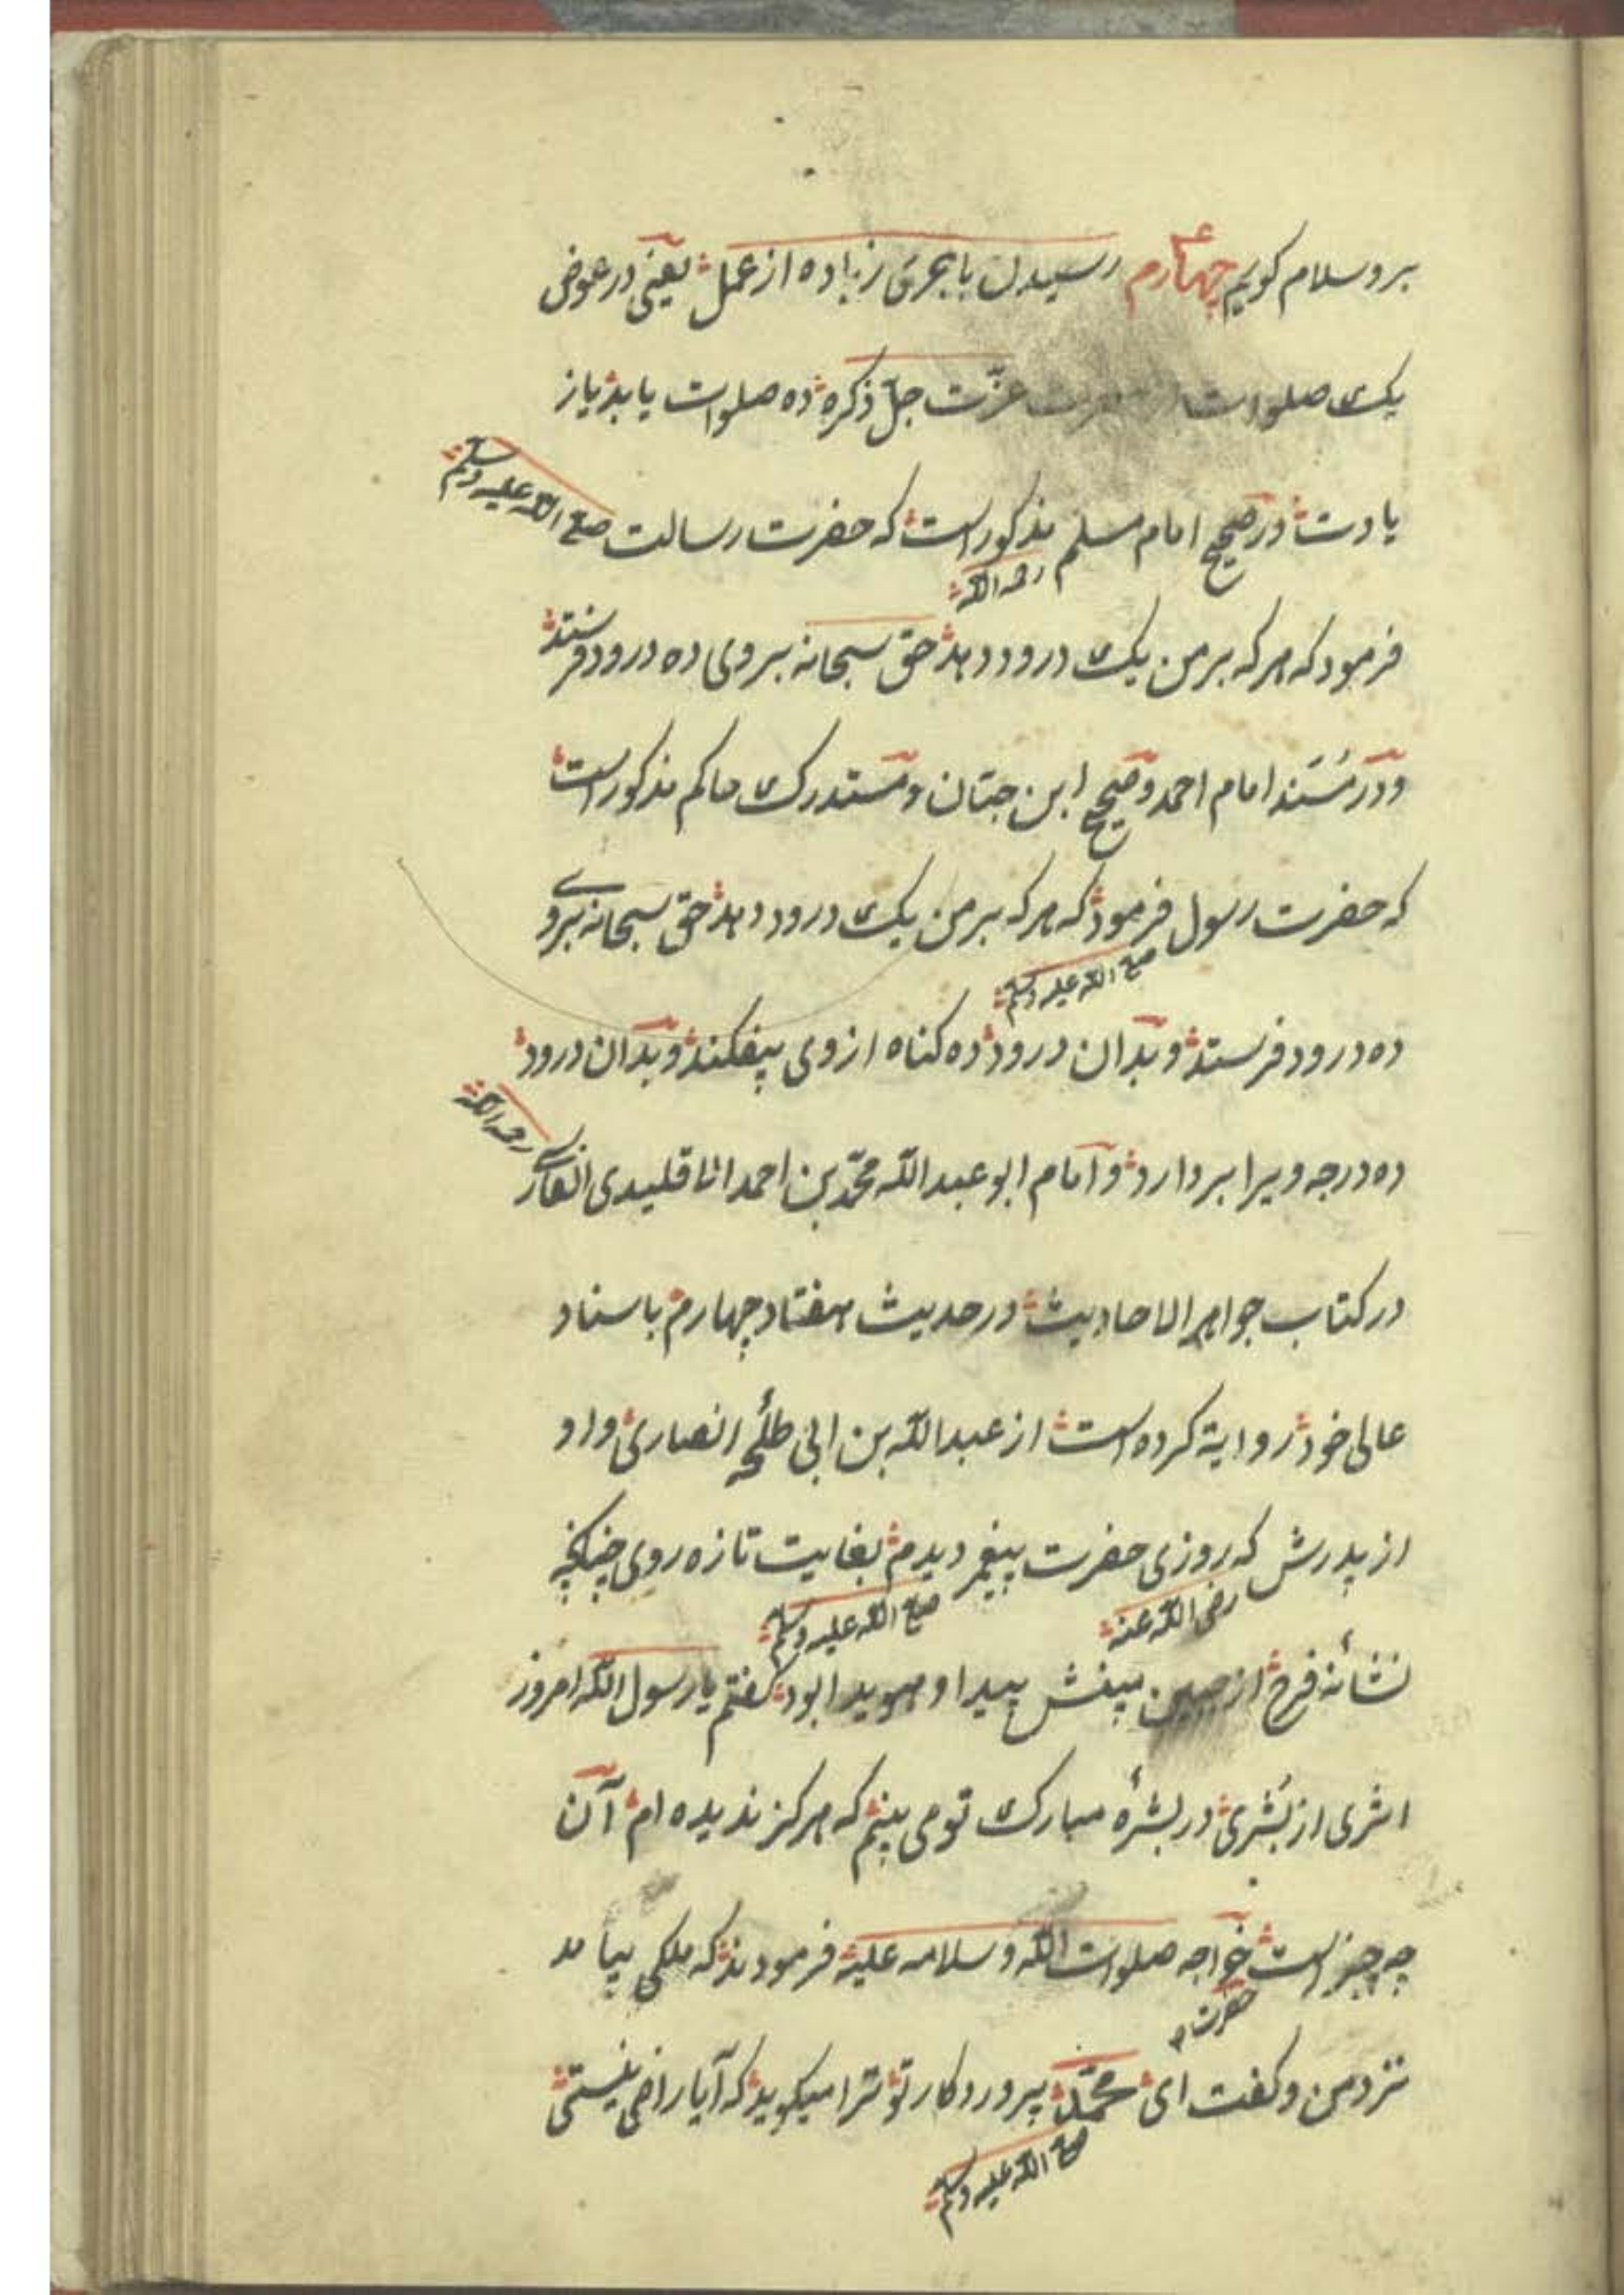 برو سلام کویم چهارم رسیدن باجری زیاده از عمل یعنی در عوض
یک صلوات حضرت عزّت جلّ ذکره ده صلوات یابد یاز
یادت در صحیح امام مسلم رحمه الله مذکور است که حضرت رسالت صلی الله علیه وسلم
فرمود که هر که بر من یک درود دهد حق سبحانه بر وی ده درود فرستد
و در مُسند امام احمد و صحیح ابن حبّان و مستدرک حاکم مذکور است
که حضرت رسول صلی الله علیه وسلم فرمود که هر که بر من یک درود دهد حق سبحانه بروی
ده درود فرستد و بدان درود ده کناه از وی بیفکند و بدان درود
ده درجه ویرا بردارد و امام ابو عبد الله محمّد بن احمد اناقلیدی رحمه الله
در کتاب جواهر الاحادیث در حدیث هفتاد چهارم باسناد
عالی خود روایة کرده است از عبد الله بن ابی طلحهٔ انصاری و او
از پدرش رضی الله عنه که روزی حضرت پیغمبر صلی الله علیه وسلم دیدم بغایت تازه روی چنانکه
نشأنه فرح از جبین بیغش پیدا و هویدا بود گفتم یا رسول الله امروز
اثری از بُشری در بشرهٔ مبارک تو می بینم که هرکز ندیده ام آن
چه چیز است حضرت خواجه صلوات الله و سلامه علیه فرمودند که ملکی بیامد
نزد من و کفت ای محمّد صلی الله علیه وسلم پروردکار تو ترا میکوید که آیا راضی نیستی